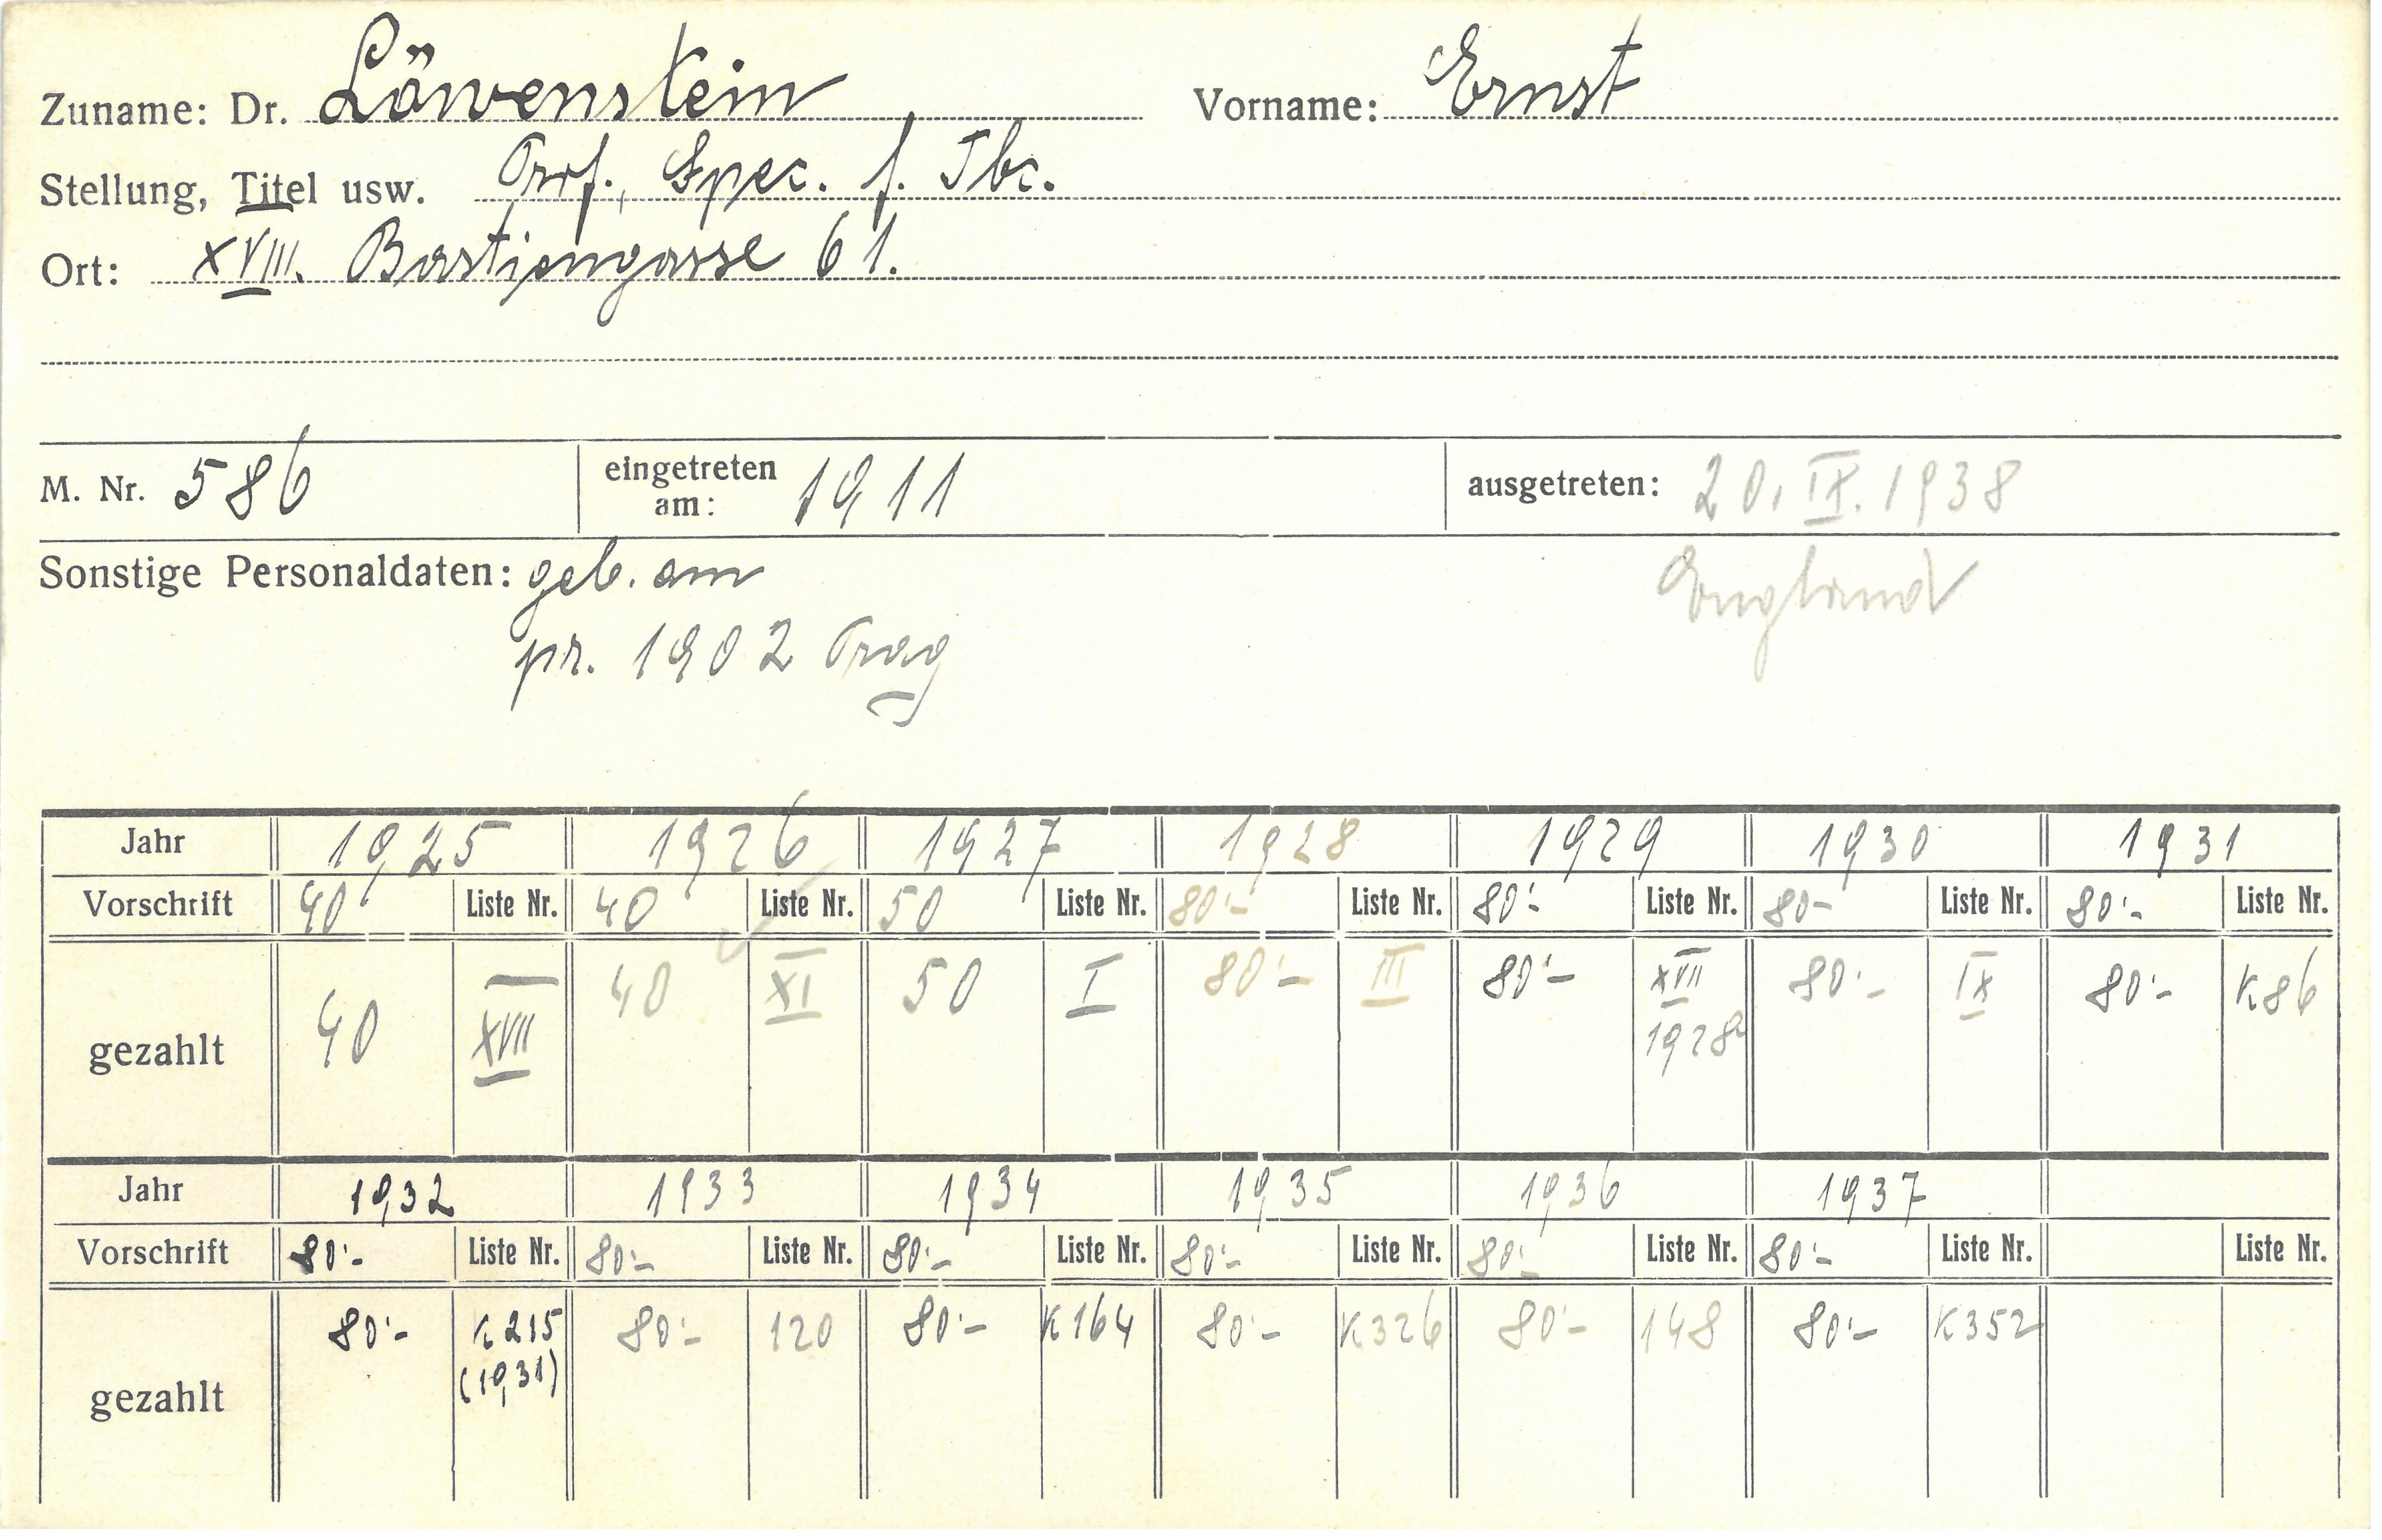 Zuname: Dr. Löwenstein Vorname: Ernst
Stellung, Titel usw. Prof., Spez. f. Tbc.
Ort: XVIII. Bastiengasse 61.
M. Nr. 586 eingetreten am: 1911 ausgetreten: 20. IX. 1938
Sonstige Personaldaten: geb. am England
pr. 1902 Prag
Jahr 1925 1926 1927 1928 1929 1930 1931
Vorschrift 40 Liste Nr. 40 Liste Nr. 50 Liste Nr. 80·- Liste Nr. 80·- Liste Nr. 80- Liste Nr. 80·- Liste Nr.
gezahlt 40 XVII 40 XI 50 I 80·- III 80·- XVII 1928 80·- IX 80·- K86
Jahr 1932 1933 1934 1935 1936 1937
Vorschrift 80·- Liste Nr. 80·- Liste Nr. 80·- Liste Nr. 80·- Liste Nr. 80·- Liste Nr. 80·- Liste Nr. Liste Nr.
gezahlt 80·- K215 (1931) 80·- 120 80·- K164 80·- K326 80·- 148 80·- K352